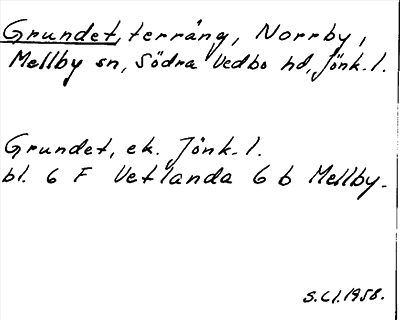 Grundet, terräng, Norrby,
Mellby sn, Södra Vedbo hd, Jönk. l.
Grundet, ek. Jönk. l.
bl. 6 F Vetlanda 6 b Mellby.
S. Cl. 1958.